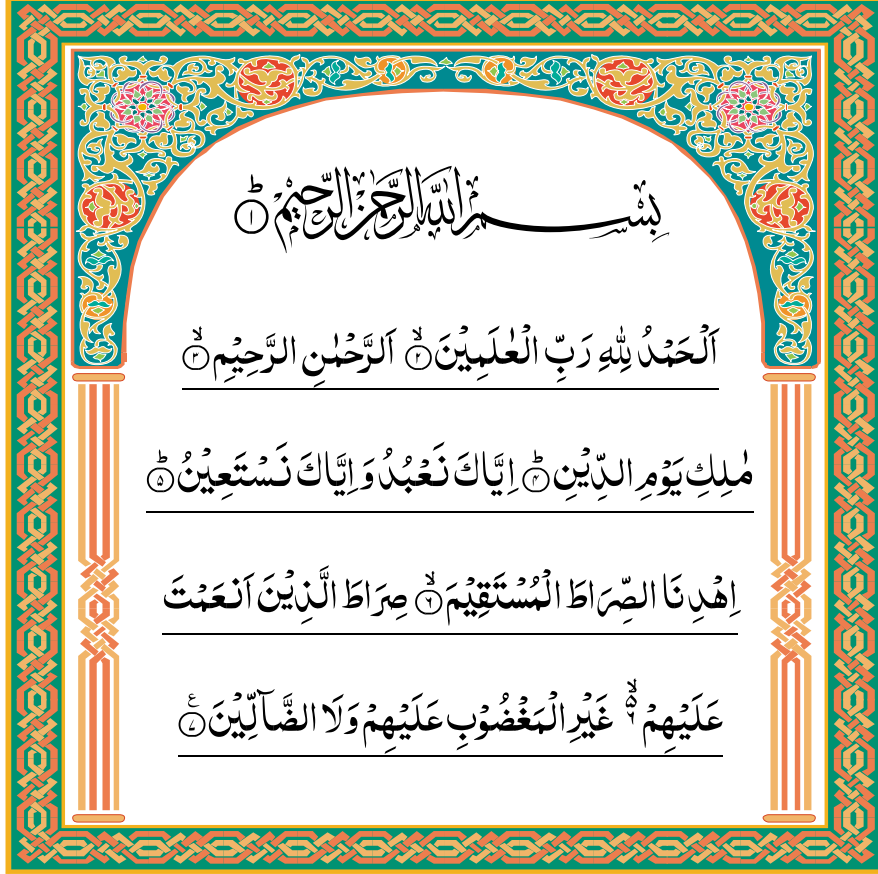 بِسْمِ اللّٰهِ الرَّحْمٰنِ الرَّحِيْمِ ؕ ﴿۱﴾
اَلْحَمْدُ لِلّٰهِ رَبِّ الْعٰلَمِيْنَ ۙ ﴿۲﴾ اَلرَّحْمٰنِ الرَّحِيْمِ ۙ ﴿۳﴾
مٰلِكِ يَوْمِ الدِّيْنِ ؕ ﴿۴﴾ اِيَّاكَ نَعْبُدُ وَ اِيَّاكَ نَسْتَعِيْنُ ؕ ﴿۵﴾
اِهْدِنَا الصِّرَاطَ الْمُسْتَقِيْمَ ۙ ﴿۶﴾ صِرَاطَ الَّذِيْنَ اَنْعَمْتَ
عَلَيْهِمْ ۙ۬ ۶ غَيْرِ الْمَغْضُوْبِ عَلَيْهِمْ وَلَا الضَّآلِّيْنَ ﴿۷﴾ ع